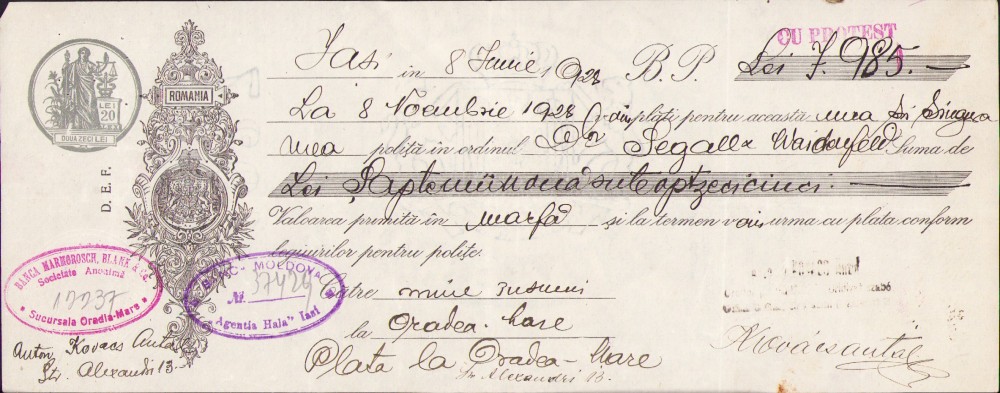 CU PROTEST
Jasi in 8 Iunie 1928 B. P. Lei 7.985.—
La 8 Noembrie 1928 plăti pentru această mea și singura
mea poliță în ordinul D-lor Segall & Waidenfeld Suma de
Lei Șaptemiinouăsuteoptzecicinci.—
Valoarea primită în marfă și la termen voiu urma cu plata conform
legiuirilor pentru polițe.
Către mine însumi
la Oradea-Mare
Plata la Oradea-Mare
Str. Alexandri 13.
Kovácsantal
ROMANIA
LEI
20
DOUAZECI LEI
D. E. F.
BANCA MARMOROSCH, BLANK & Co.
Societate Anonimă
17237
Sucursala Oradia-Mare
BANC MOLDOVA
№ 37426
"Agentia Hala" Iasi
Anton Kovacs Antal
Str. Alexandri 13.